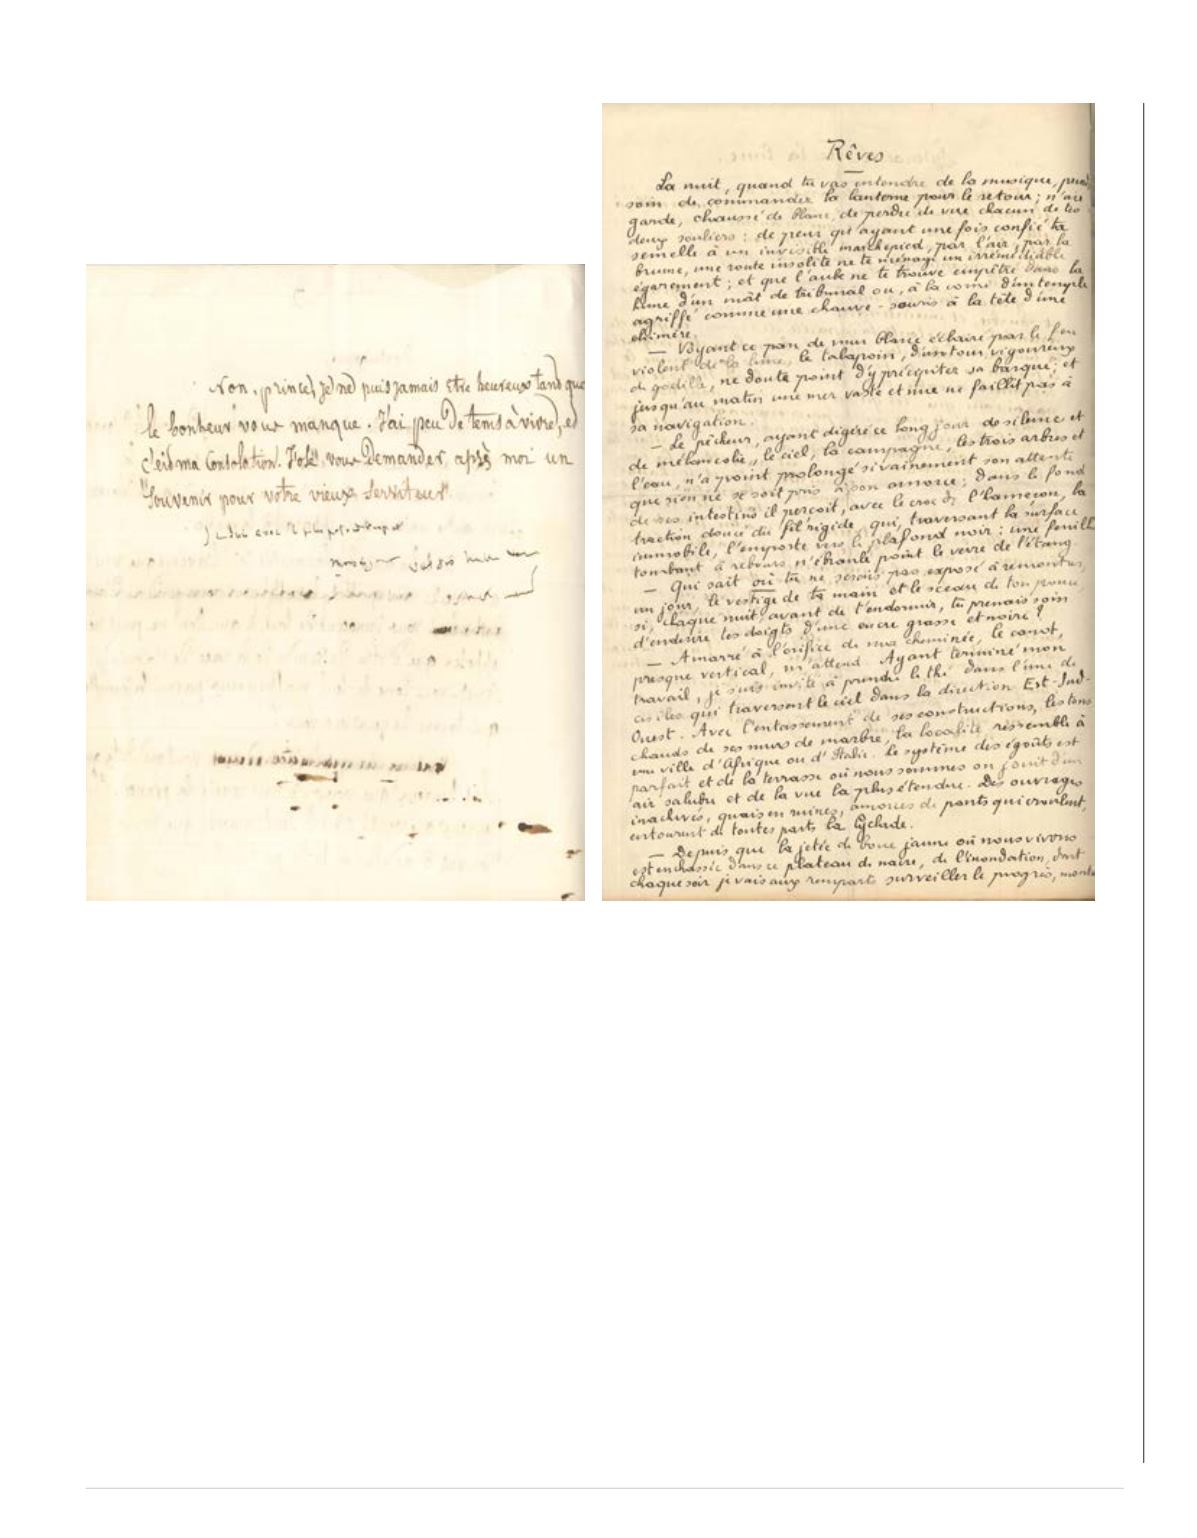 Non, prince, je ne puis jamais etre heureux tand que
le bonheur vous manque. J'ai peu de tems à vivre, et
c'eid ma Consolation. J'ose vous Demander, après moi un
"Souvenir pour votre vieux Serviteur".
Rêves
La nuit, quand tu vas entendre de la musique, prends
soin de commander la lanterne pour le retour ; n'aie
garde, chaussé de blanc, de perdre de vue chacun de tes
deux souliers : de peur qu'ayant une fois confié ta
semelle à un invisible marchepied, par l'air, par la
brume, une route insolite ne te ménage un irrémédiable
égarement ; et que l'aube ne te trouve empêtré dans la
hune d'un mât de tribunal ou, à la corne d'un temple
agriffé comme une chauve-souris à la tête d'une
chimère.
— Voyant ce pan de mur blanc éclairé par le feu
violent de la lune, le talapoin, d'un tour vigoureux
de godille, ne doute point d'y précipiter sa barque ; et
jusqu'au matin une mer vaste et nue ne faillit pas à
sa navigation.
— Le pêcheur, ayant digéré ce long jour de silence et
de mélancolie, le ciel, la campagne, les trois arbres et
l'eau, n'a point prolongé si vainement son attente
que rien ne se soit pris à son amorce ; dans le fond
de ses intestins il perçoit, avec le croc de l'hameçon, la
traction douce du fil rigide qui, traversant la surface
immobile, l'emporte vers le plafond noir : une feuille
tombant à rebours n'ébranle point le verre de l'étang.
— Qui sait où tu ne serais pas exposé à remontrer,
un jour, le vestige de ta main et le sceau de ton pouce,
si, chaque nuit, avant de t'endormir, tu prenais soin
d'enduire tes doigts d'une encre grasse et noire ?
— Amarré à l'orifice de ma cheminée, le canot,
presque vertical, m'attend. Ayant terminé mon
travail, je suis invité à prendre le thé dans l'une de
ces îles qui traversent le ciel dans la direction Est-Sud-
Ouest. Avec l'entassement de ses constructions, les tons
chauds de ses murs de marbre, la localité ressemble à
une ville d'Afrique ou d'Italie. Le système des égoûts est
parfait et de la terrasse où nous sommes on jouit d'un
air salubre et de la vue la plus étendue. Des ouvrages
inachevés, quais en ruines, amorces de ponts qui croulent,
entourent de toutes parts la Cyclade.
— Depuis que la jetée de boue jaune où nous vivons
est enchassée dans ce plateau de nacre, de l'inondation, dont
chaque soir je vais aux remparts surveiller le progrès, monte